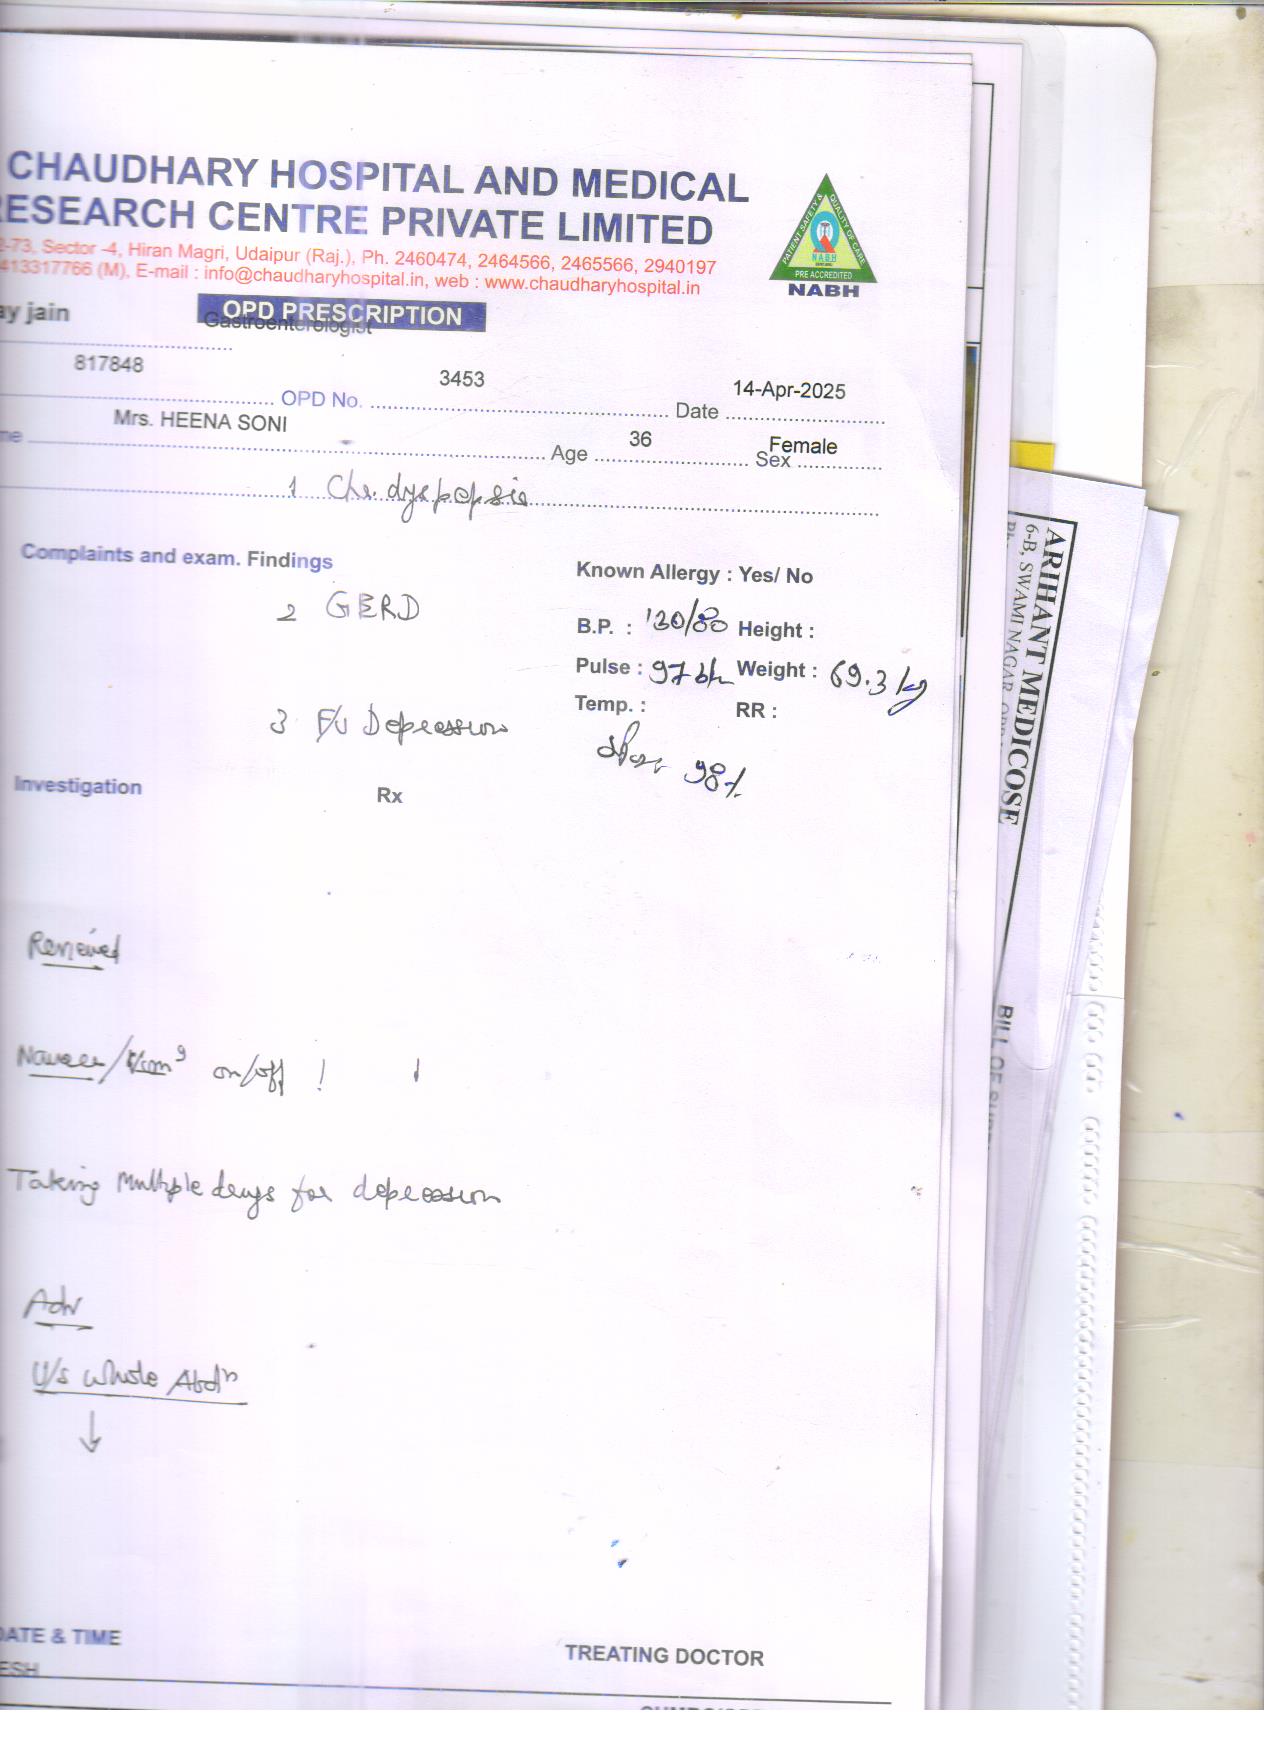 CHAUDHARY HOSPITAL AND MEDICAL
RESEARCH CENTRE PRIVATE LIMITED
-73, Sector -4, Hiran Magri, Udaipur (Raj.), Ph. 2460474, 2464566, 2465566, 2940197
413317766 (M), E-mail : info@chaudharyhospital.in, web : www.chaudharyhospital.in
PATIENT SAFETY & QUALITY OF CARE
NABH
PRE ACCREDITED
NABH
ay jain
OPD PRESCRIPTION
Gastroenterologist
817848
OPD No. 3453
Date 14-Apr-2025
me Mrs. HEENA SONI
Age 36
Sex Female
1 Chr. dyspepsia
Complaints and exam. Findings
Known Allergy : Yes/ No
2 GERD
B.P. : 130/80 Height :
Pulse : 97 Weight : 69.3 kg
Temp. : RR :
3 F/U Depression
98%
Investigation
Rx
Reviewed
Nausea/ on/off !
Taking Multiple drugs for depression
Adv
U/s Whole Abdn
↓
DATE & TIME
TREATING DOCTOR
ESH
ARIHANT MEDICOSE
6-B, SWAMI NAGAR,
BILL OF